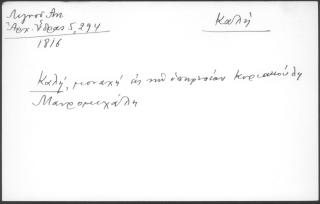 Λιγνού Αντ.
Αρχ. Ύδρας 5, 294
1816
Καλή
Καλή, μοναχή εις την υπηρεσίαν Κυριακούλη
Μαυρομιχάλη